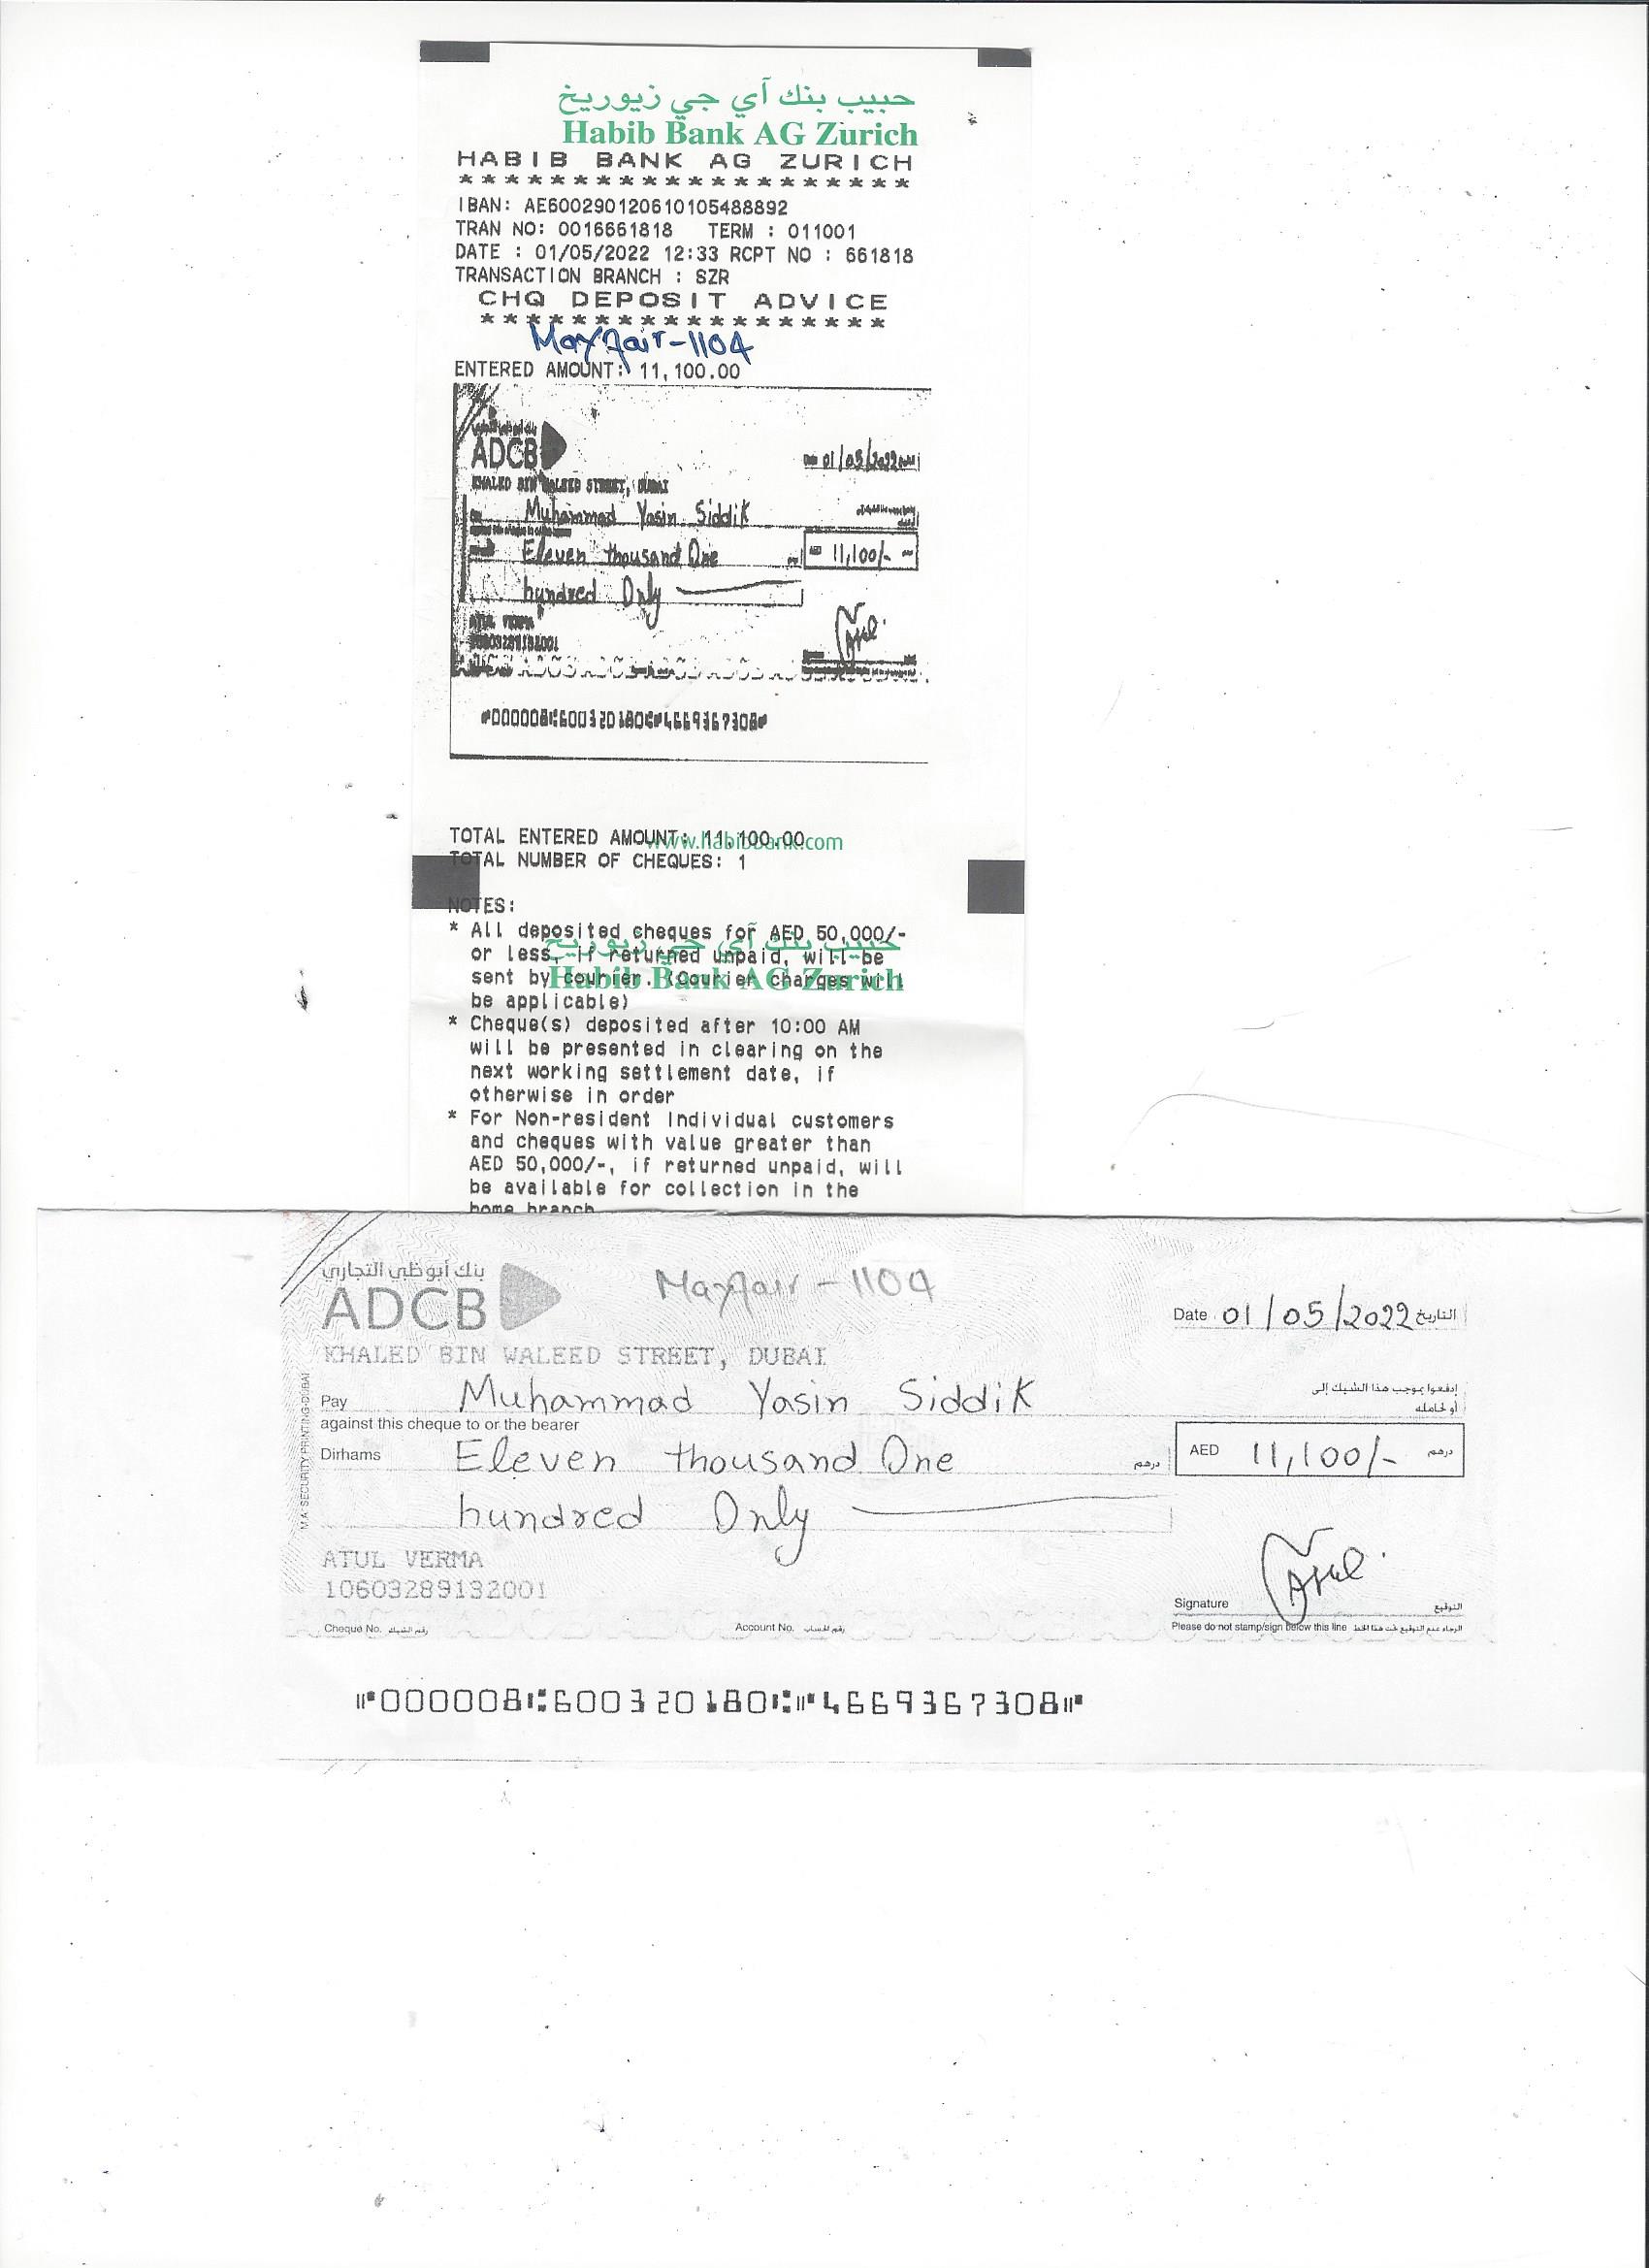 حبيب بنك آي جي زيوريخ
Habib Bank AG Zurich
HABIB BANK AG ZURICH
********************
IBAN: AE600290120610105488892
TRAN NO: 0016661818 TERM : 011001
DATE : 01/05/2022 12:33 RCPT NO : 661818
TRANSACTION BRANCH : SZR
CHQ DEPOSIT ADVICE
******************
Mayfair-1104
ENTERED AMOUNT: 11,100.00
ADCB
01/05/2022
KHALED BIN WALEED STREET, DUBAI
Muhammad Yasin Siddik
Eleven thousand One
11,100/-
hundred Only
ATUL VERMA
10603289132001
000008 600320180 4669367308
TOTAL ENTERED AMOUNT: 11,100.00
www.habibbank.com
TOTAL NUMBER OF CHEQUES: 1
NOTES:
* All deposited cheques for AED 50,000/-
حبيب بنك آي جي زيوريخ
or less, if returned unpaid, will be
sent by courier. (Courier charges will
Habib Bank AG Zurich
be applicable)
* Cheque(s) deposited after 10:00 AM
will be presented in clearing on the
next working settlement date, if
otherwise in order
* For Non-resident Individual customers
and cheques with value greater than
AED 50,000/-, if returned unpaid, will
be available for collection in the
home branch
بنك أبوظبي التجاري
ADCB
Mayfair - 1104
Date 01/05/2022 التاريخ
KHALED BIN WALEED STREET, DUBAI
Pay Muhammad Yasin Siddik إدفعوا بموجب هذا الشيك إلى
أو لحامله
against this cheque to or the bearer
Dirhams Eleven thousand One درهم
AED 11,100/- درهم
hundred Only
M.A. SECURITY PRINTING-DUBAI
ATUL VERMA
10603289132001
Signature التوقيع
Cheque No. رقم الشيك
Account No. رقم الحساب
Please do not stamp/sign below this line الرجاء عدم التوقيع تحت هذا الخط
000008 600320180 4669367308